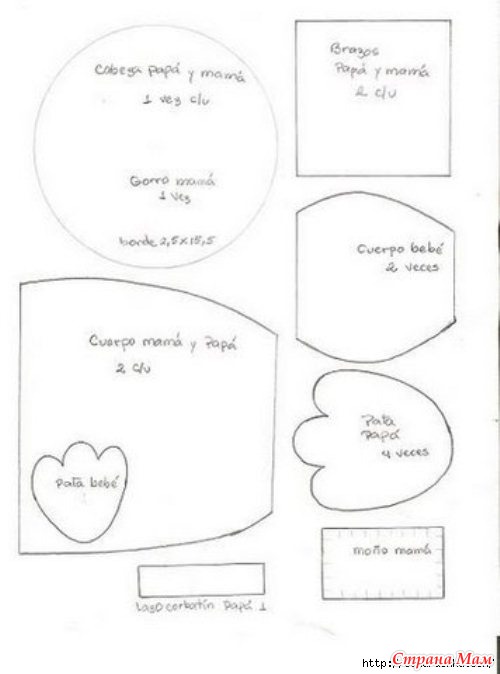 Cabeza papá y mamá
1 vez c/u
Gorro mamá
1 vez
borde 2,5x15,5
Brazos
Papá y mamá
2 c/u
Cuerpo bebé
2 veces
Cuerpo mamá y Papá
2 c/u
Pata bebé
Pata
Papá
4 veces
moño mamá
Lazo corbatín Papá 1
Страна Мам
http://